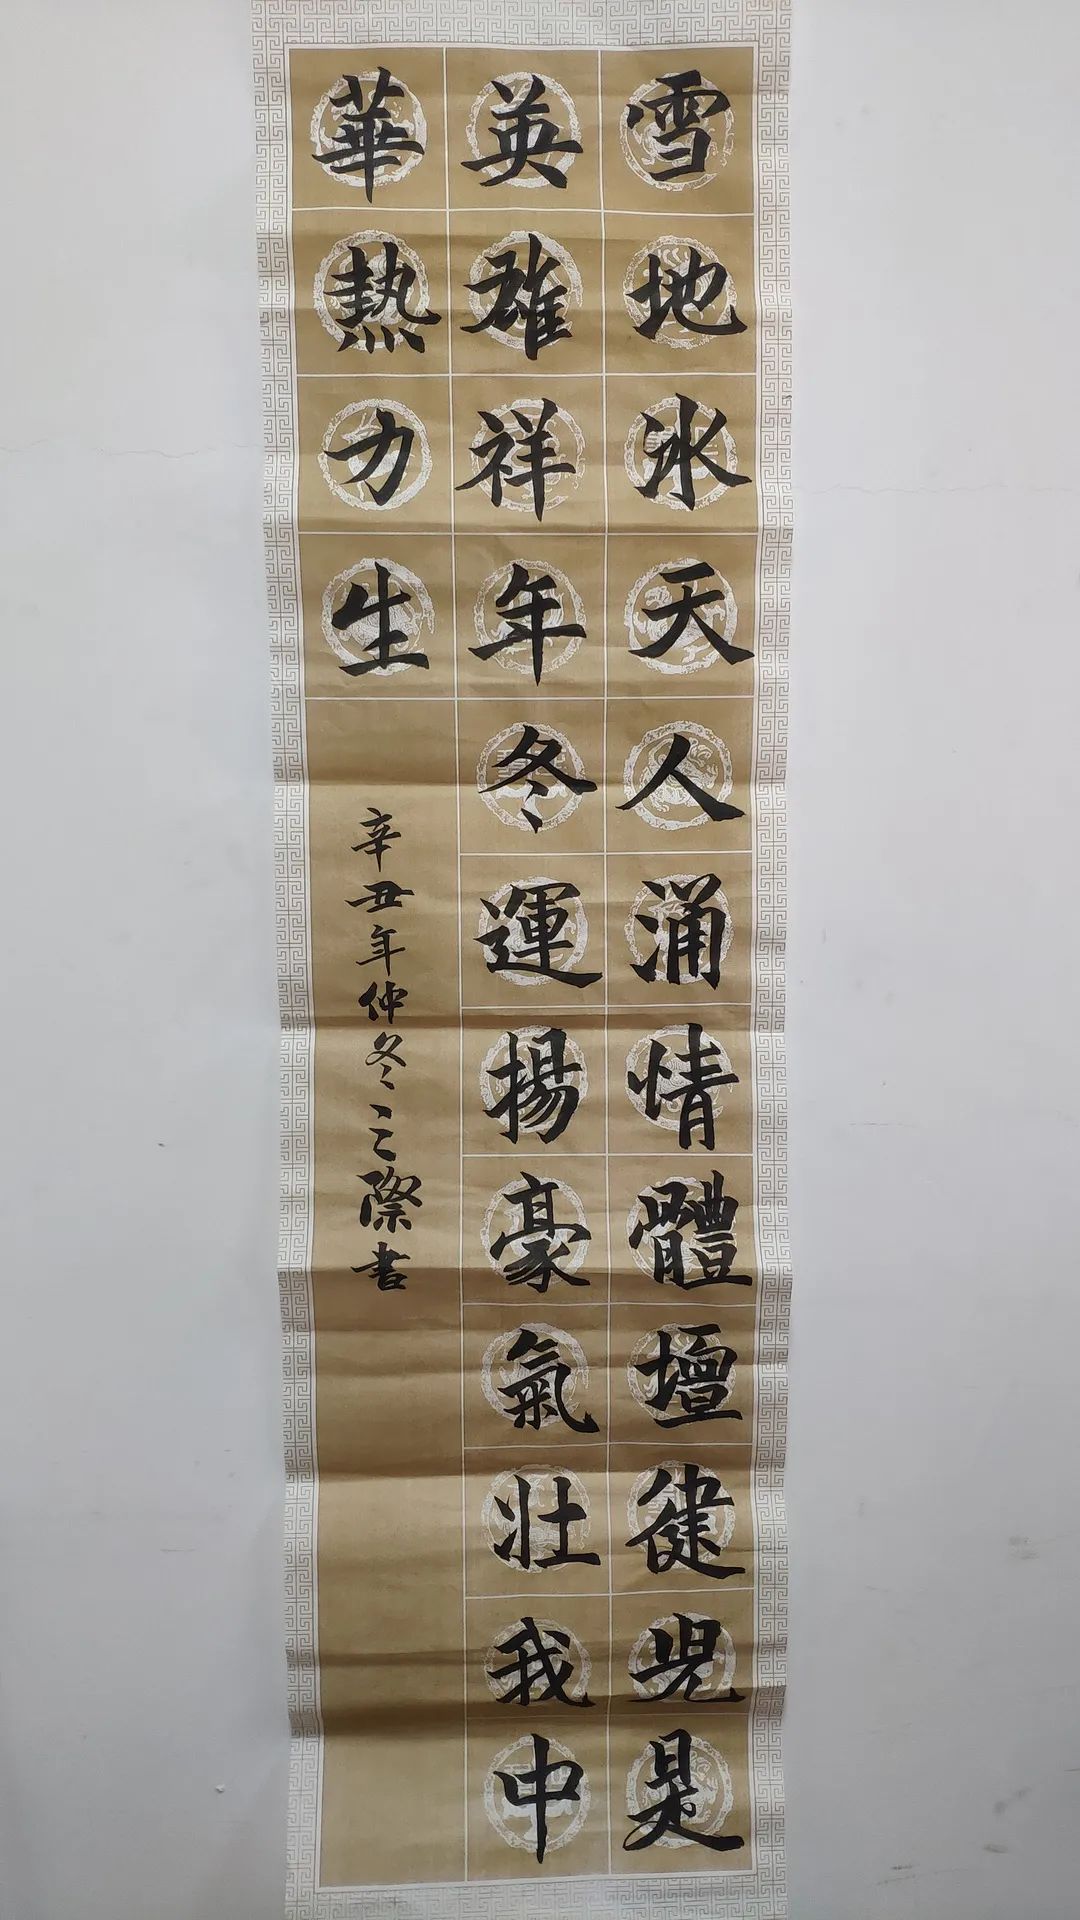 雪地冰天人涌情體壇健兒是
英雄祥年冬運揚豪氣壯我中
華熱力生
辛丑年仲冬之際書